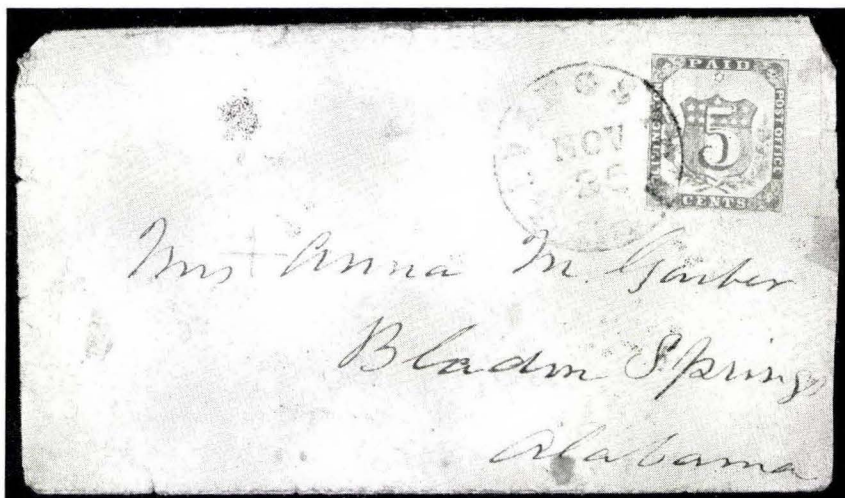 PAID
LIVINGSTON
POST OFFICE
5
CENTS
NOV
Mrs Anna M. Garber
Bladon Springs
Alabama